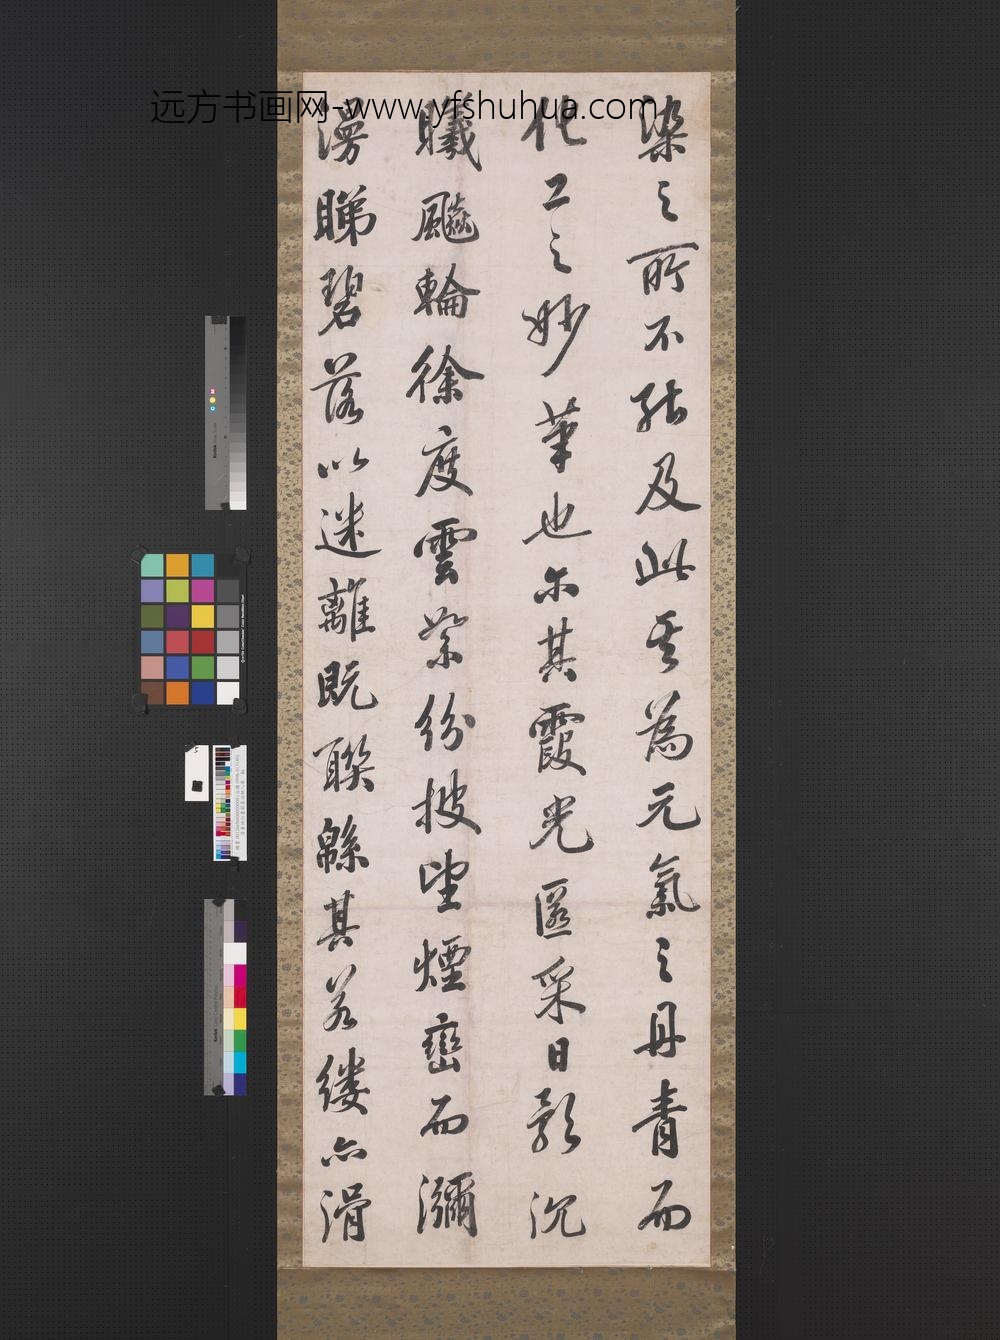 远方书画网-www.yfshuhua.com
染之所不能及此其為元氣之丹青而
化工之妙筆也尔其霞光匿采日影沉
曦飈輪徐度雲縈紛披望煙巒而瀰
漫睇碧落以迷離既聯緜其若縷亦滑